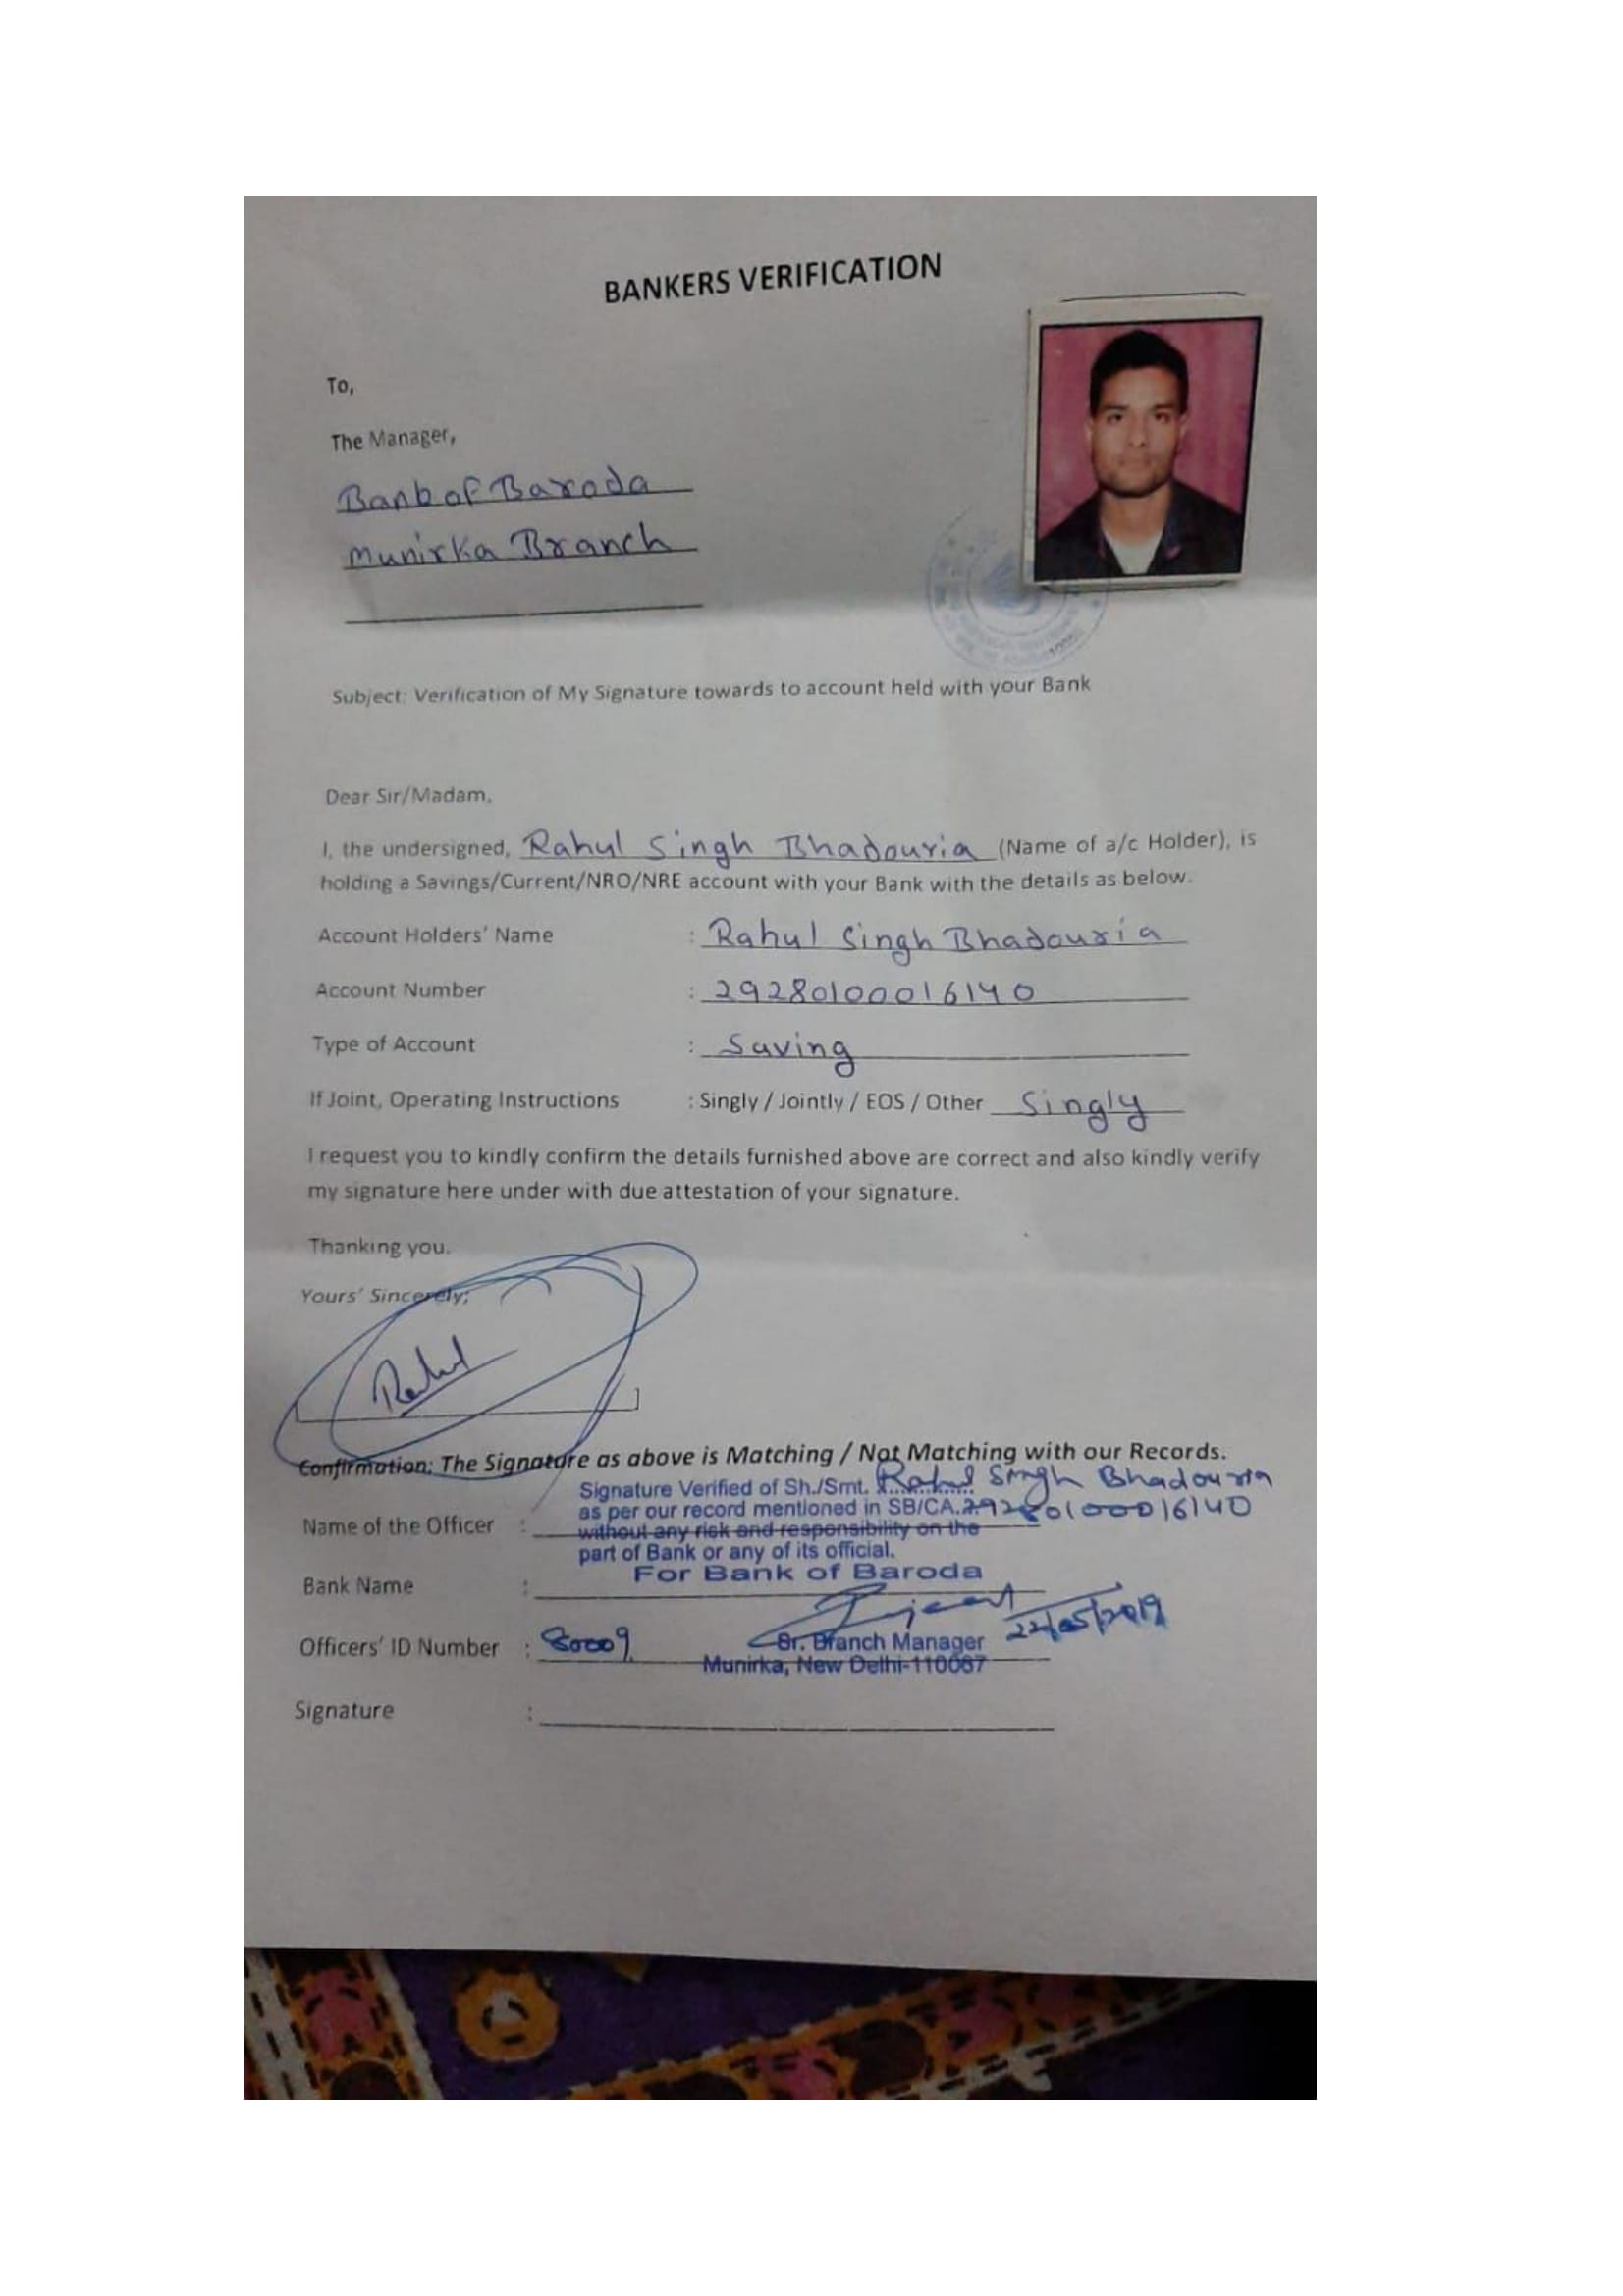 BANKERS VERIFICATION
To,
The Manager,
Bank of Baroda
Munirka Branch
Subject: Verification of My Signature towards to account held with your Bank
Dear Sir/Madam,
I, the undersigned, Rahul Singh Bhadouria (Name of a/c Holder), is
holding a Savings/Current/NRO/NRE account with your Bank with the details as below.
Account Holders' Name : Rahul Singh Bhadouria
Account Number : 29280100016140
Type of Account : Saving
If Joint, Operating Instructions : Singly / Jointly / EOS / Other Singly
I request you to kindly confirm the details furnished above are correct and also kindly verify
my signature here under with due attestation of your signature.
Thanking you.
Yours' Sincerely;
Rahul
Confirmation: The Signature as above is Matching / Not Matching with our Records.
Signature Verified of Sh./Smt. Rahul Singh Bhadouria
as per our record mentioned in SB/CA. 29280100016140
Name of the Officer :
without any risk and responsibility on the
part of Bank or any of its official.
For Bank of Baroda
Bank Name :
22/05/2019
Officers' ID Number : 80009
Sr. Branch Manager
Munirka, New Delhi-110067
Signature :